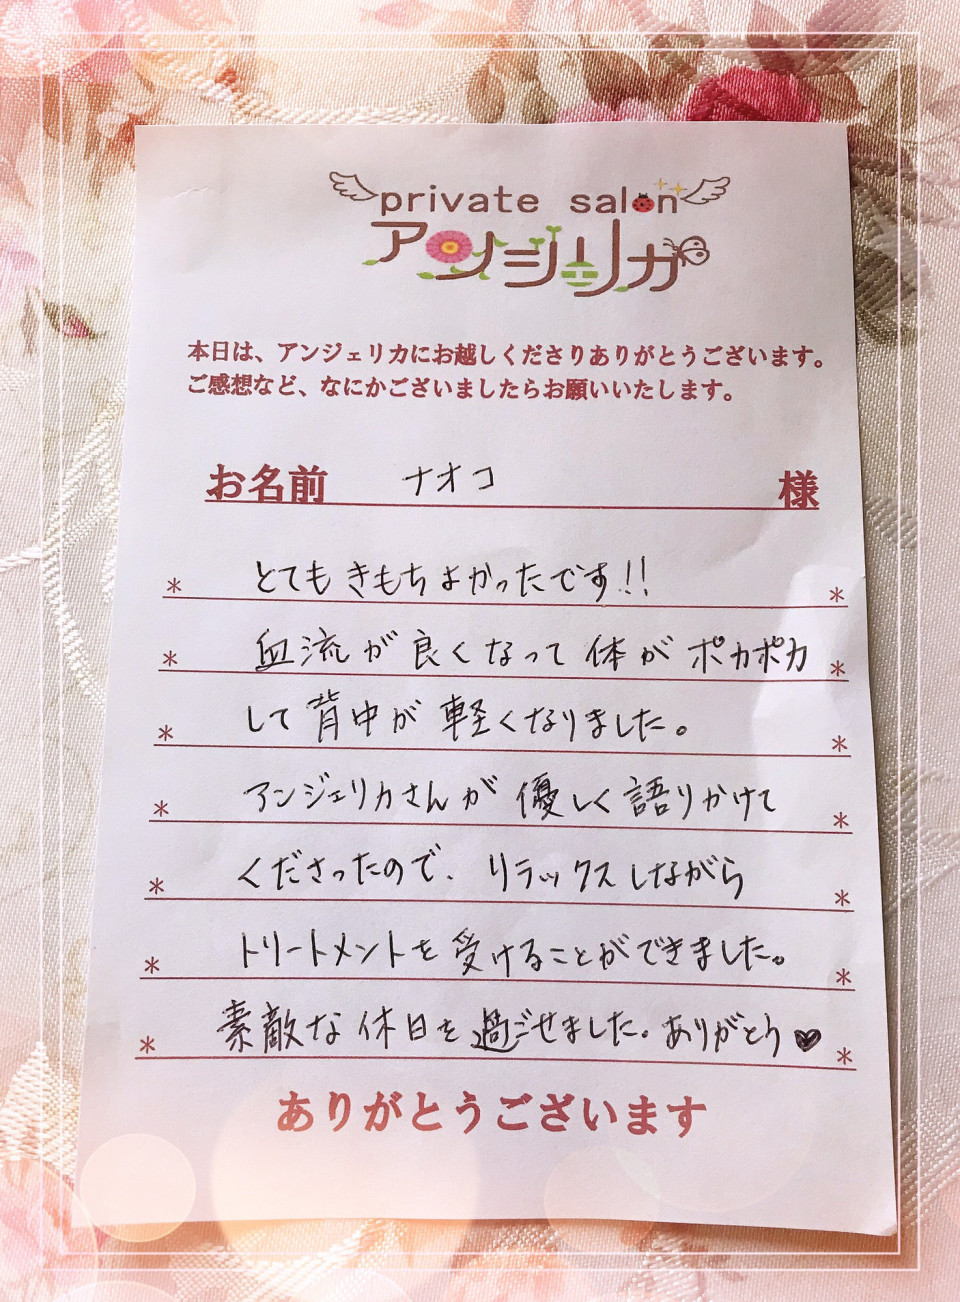 private salon
アンジェリカ
本日は、アンジェリカにお越しくださりありがとうございます。
ご感想など、なにかございましたらお願いいたします。
お名前 ナオコ 様
* とてもきもちよかったです!! *
* 血流が良くなって体がポカポカ *
* して背中が軽くなりました。 *
* アンジェリカさんが優しく語りかけて *
* くださったので、リラックスしながら *
* トリートメントを受けることができました。 *
* 素敵な休日を過ごせました。ありがとう♥ *
ありがとうございます